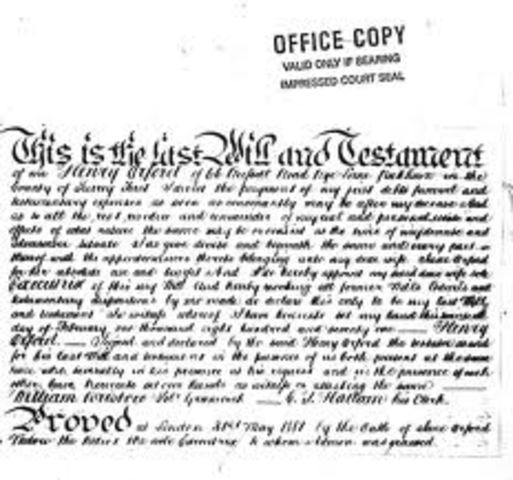 OFFICE COPY
VALID ONLY IF BEARING
IMPRESSED COURT SEAL
This is the last Will and Testament
of me Henry Orford of 66 Road Rye Lane Peckham in the
County of Surrey First I direct the payment of my just debts funeral and
testamentary expenses as soon as conveniently may be after my decease And
as to all the rest residue and remainder of my real and personal estate and
effects of what nature the same may be
situate I do give devise and bequeath the same and every part
thereof with the appurtenances thereto belonging unto my dear wife Orford
for her absolute use and benefit And I do hereby appoint my said dear wife sole
Executrix of this my Will And hereby revoking all former Wills Codicils and
testamentary dispositions by me made do declare this only to be my last Will
and testament In witness whereof I have hereunto set my hand this
day of February one thousand eight hundred and seventy one — Henry
Orford. — Signed and declared by the said Henry Orford the testator as and
for his last Will and testament in the presence of us both present at the same
time who severally in his presence at his request and in the presence of each
other have hereunto set our hands as witnesses attesting the same —
William — C. J. Hallam his Clerk.
Proved at London May 1881 by the Oath of Orford
Widow the Relict the sole Executrix to whom Admon was granted.